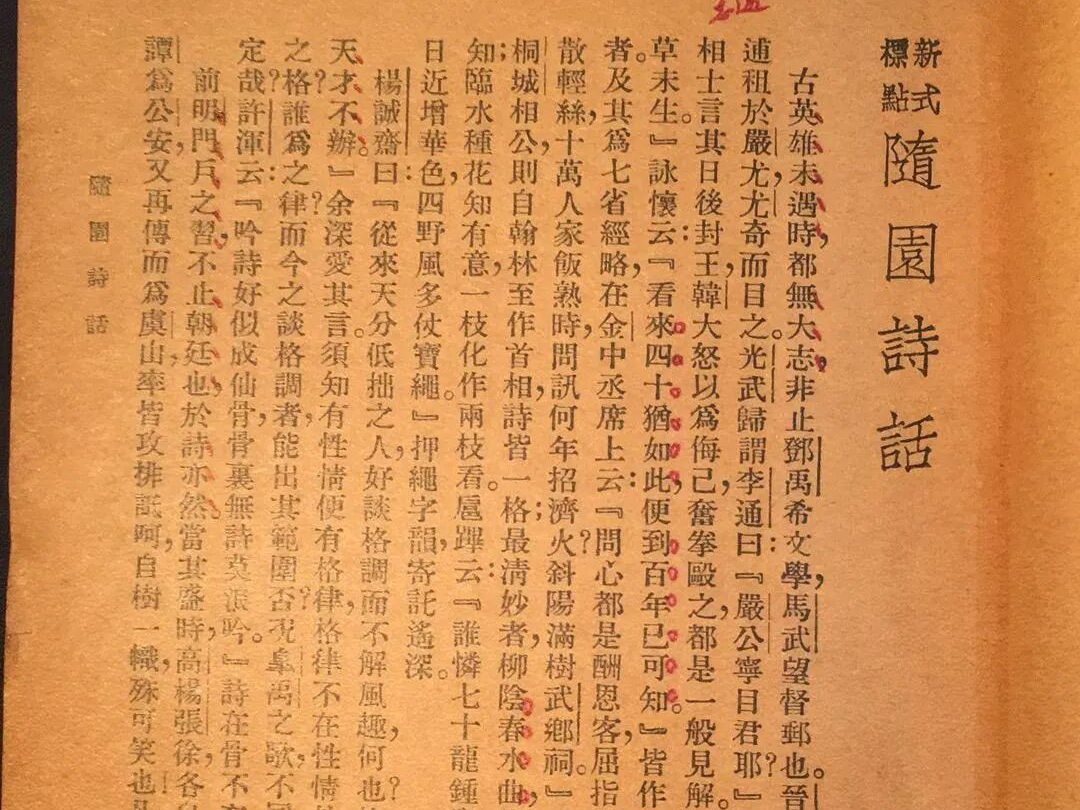 新式
標點
隨園詩話
古英雄未遇時,都無大志,非止鄧禹希文學,馬武望督郵也。晉
逋租於嚴尤,尤奇而目之。光武歸謂李通曰:『嚴公寧目君耶?
相士言其日後封王,韓大怒以為侮己,奮拳毆之,都是一般見解。
草未生。』詠懷云:『看來四十猶如此,便到百年已可知。』皆作
者。及其為七省經略,在金中丞席上云:『問心都是酬恩客,屈指
散輕絲,十萬人家飯熟時,問訊何年招濟火?斜陽滿樹武鄉祠。』
桐城相公,則自翰林至作首相,詩皆一格;最清妙者,柳陰春水曲,
知;臨水種花知有意,一枝化作兩枝看。扈蹕云:『誰憐七十龍鍾
日近增華色,四野風多仗寶繩。』押繩字韻,寄託遙深。
楊誠齋曰:『從來天分低拙之人,好談格調,而不解風趣,何也?
天才不辦。』余深愛其言。須知有性情,便有格律,格律不在性情
之格?誰為之律?而今之談格調者,能出其範圍否?況皋禹之歌,不
定哉?許渾云:『吟詩好似成仙骨,骨裏無詩莫浪吟。』詩在骨不
前明門戶之習,不止朝廷也,於詩亦然。當其盛時,高楊張徐,各
譚為公安,又再傳而為虞山;率皆攻排詆呵,自樹一幟,殊可笑也!
隨園詩話